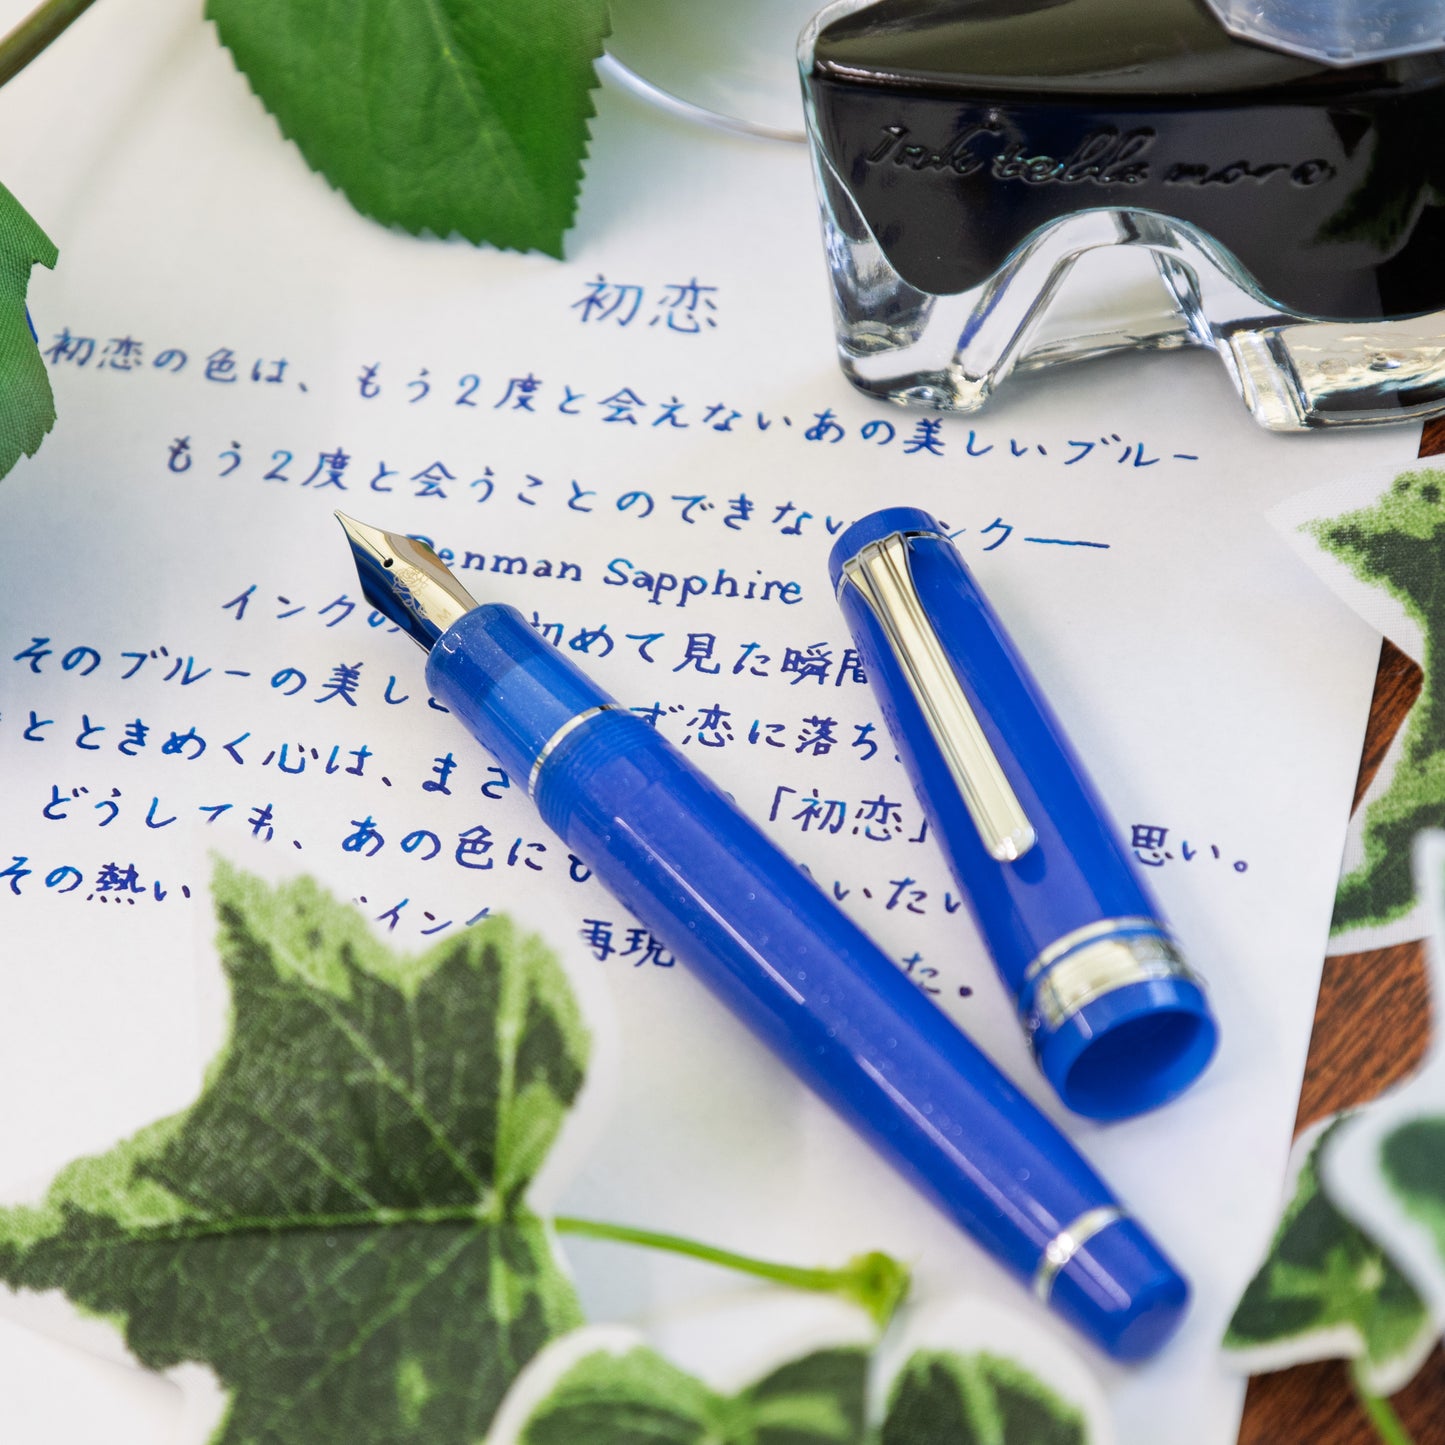 Ink tells more
初恋
初恋の色は、もう2度と会えないあの美しいブルー
もう2度と会うことのできない ンク──
Penman Sapphire
インクの 初めて見た瞬
そのブルーの美し ず恋に落ち
とときめく心は、まさ 「初恋」 思い。
どうしても、あの色に いたい
その熱い インク 再現 た。
M